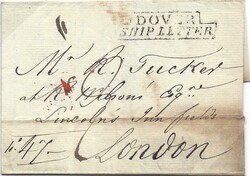 DOVER
SHIP LETTER
Mr. R. Tucker
at R. Esqre
Lincoln's Inn fields
47
London